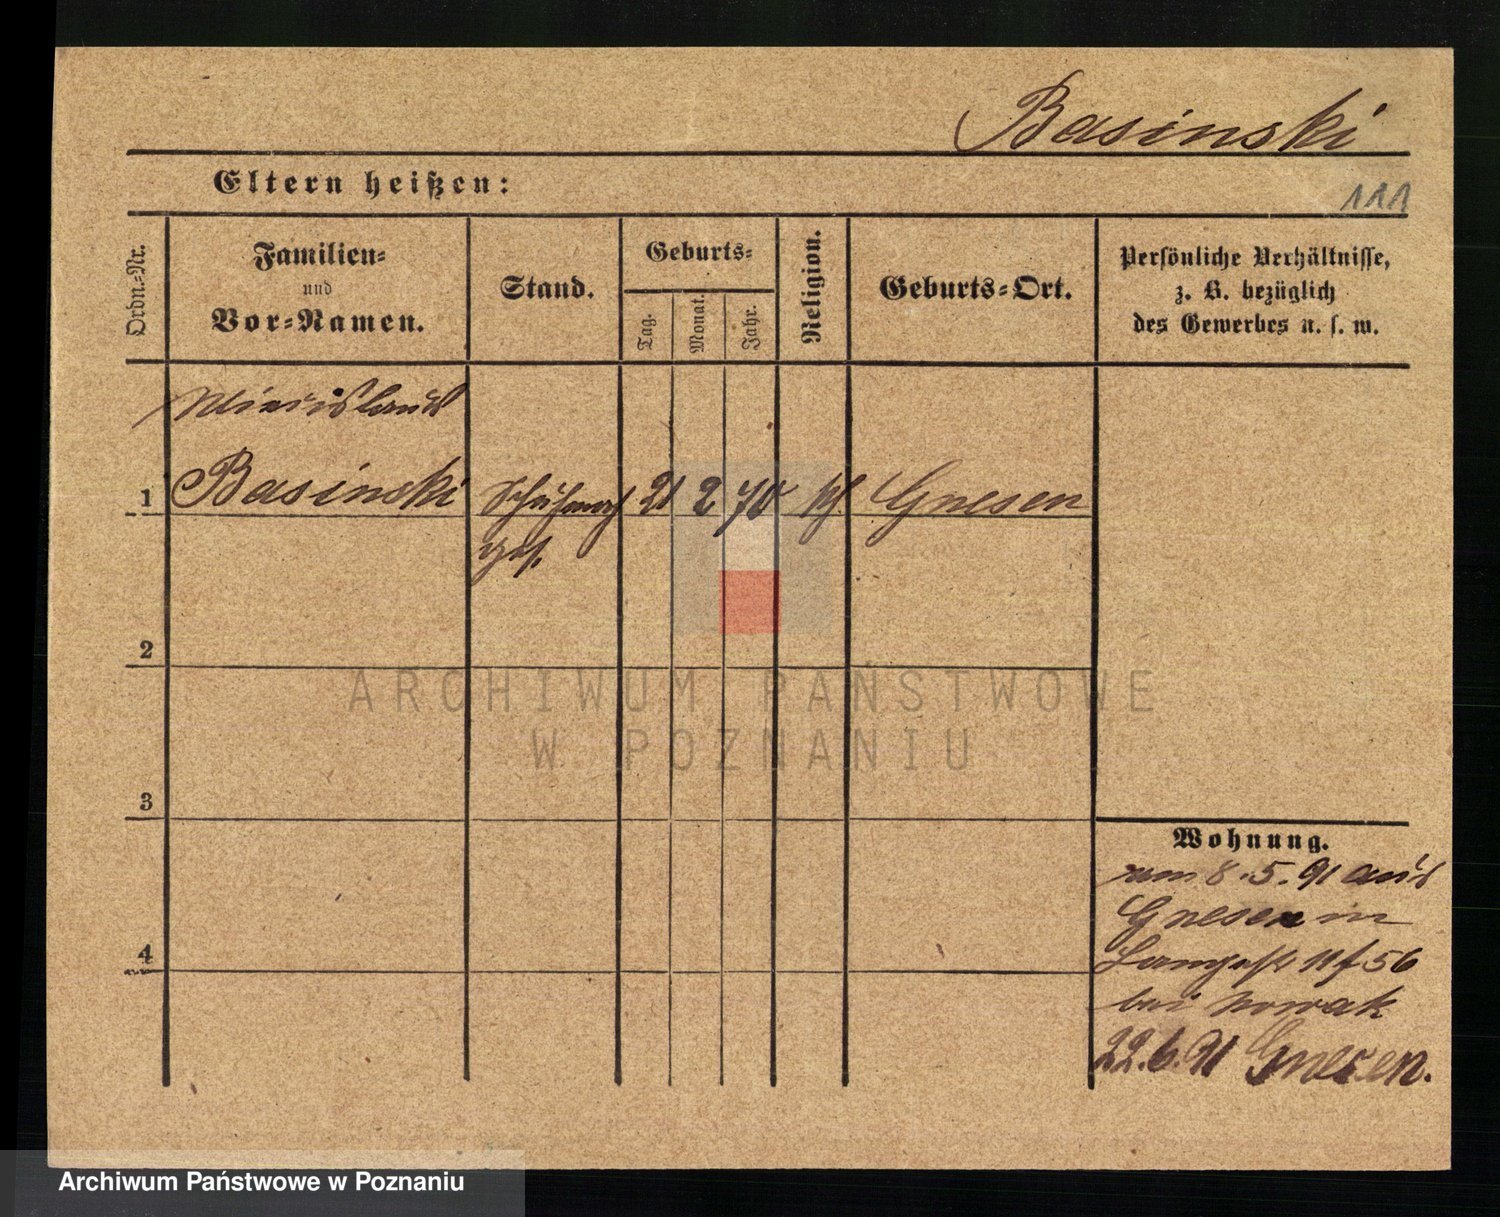 Basinski
Eltern heißen:
111
Ordn.-Nr.
Familien-
und
Vor-Namen.
Stand.
Geburts-
Tag.
Monat.
Jahr.
Religion.
Geburts-Ort.
Persönliche Verhältnisse,
z. B. bezüglich
des Gewerbes u. s. w.
1
Basinski
21 2 70
Gnesen
2
3
4
Wohnung.
8.5.91 aus
Gnesen in
56
bei Nowak
22.6.91 Gnesen.
ARCHIWUM PAŃSTWOWE
W POZNANIU
Archiwum Państwowe w Poznaniu